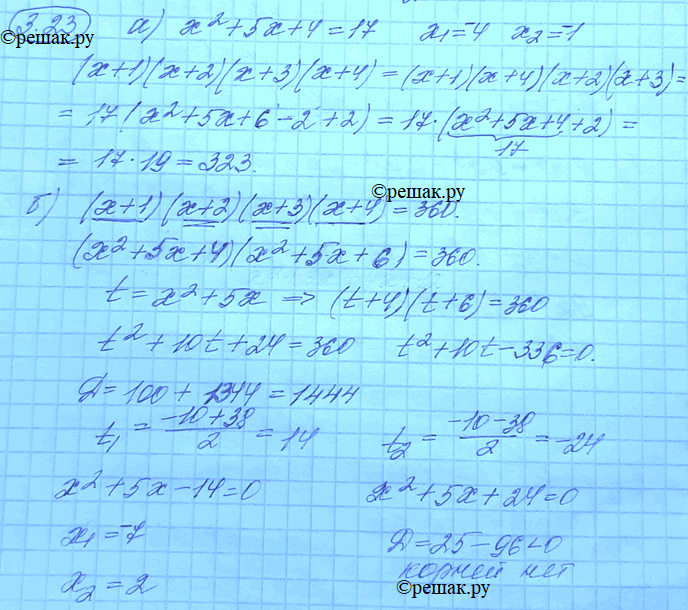 3.23 а) x²+5x+4=17 x₁=-4 x₂=-1
©решак.ру
(x+1)(x+2)(x+3)(x+4)=(x+1)(x+4)(x+2)(x+3)=
=17(x²+5x+6-2+2)=17·(x²+5x+4+2)=
17
=17·19=323.
©решак.ру
б) (x+1)(x+2)(x+3)(x+4)=360.
(x²+5x+4)(x²+5x+6)=360.
t=x²+5x => (t+4)(t+6)=360
t²+10t+24=360 t²+10t-336=0.
Д=100+1344=1444
t₁=(-10+38)/2=14 t₂=(-10-38)/2=-24
x²+5x-14=0 x²+5x+24=0
x₁=-7 Д=25-96<0
x₂=2 корней нет
©решак.ру